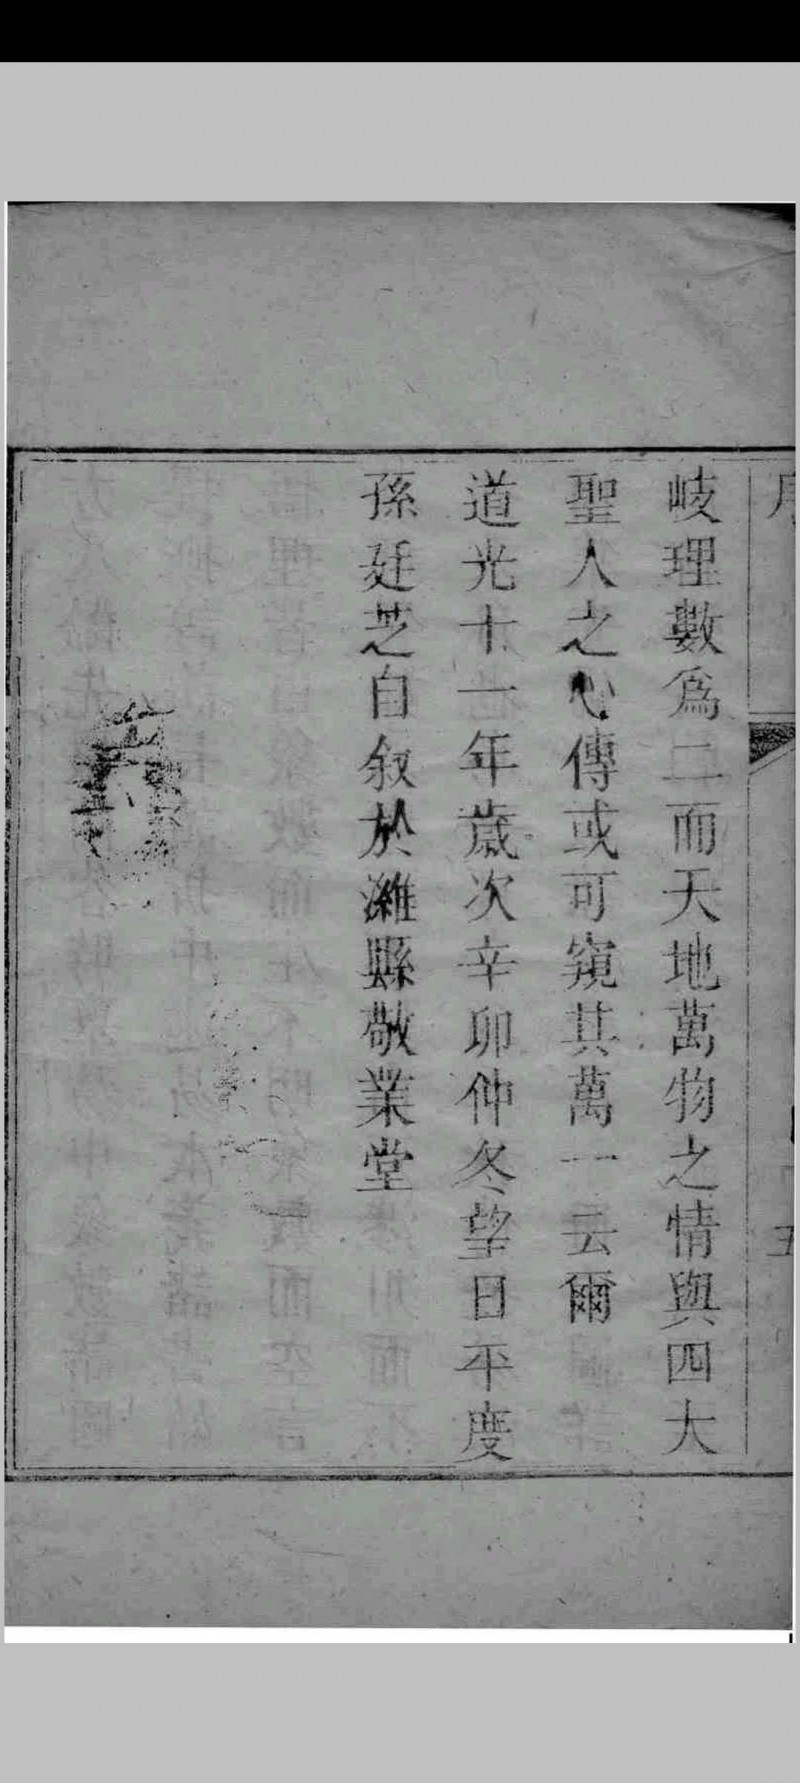 岐理數爲二而天地萬物之情與四大
聖人之心傳或可窺其萬一云爾
道光十一年歲次辛卯仲冬望日平度
孫廷芝自叙於濰縣敬業堂